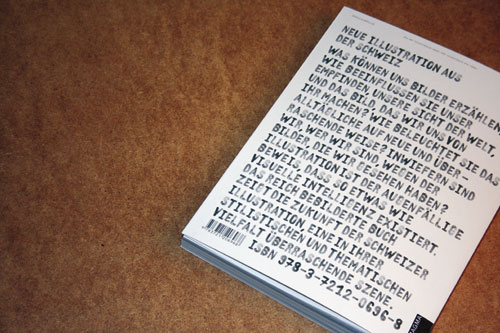 NEUE ILLUSTRATION AUS
DER SCHWEIZ
WAS KÖNNEN UNS BILDER ERZÄHLEN,
WIE BEEINFLUSSEN SIE UNSER
EMPFINDEN, UNSERE SICHT DER WELT,
UND DAS BILD, DAS WIR UNS VON
IHR MACHEN? WIE BELEUCHTET SIE DAS
ALLTÄGLICHE AUF NEUE UND ÜBER-
RASCHENDE WEISE? INWIEFERN SIND
WIR, WER WIR SIND, WEGEN DER
BILDER, DIE WIR GESEHEN HABEN?
ILLUSTRATION IST DER AUGENFÄLLIGE
BEWEIS, DASS SO ETWAS WIE
VISUELLE INTELLIGENZ EXISTIERT.
DAS REICH BEBILDERTE BUCH
ZEIGT DIE ZUKUNFT DER SCHWEIZER
ILLUSTRATION, EINE IN IHRER
STILISTISCHEN UND THEMATISCHEN
VIELFALT ÜBERRASCHENDE SZENE.
ISBN 978-3-7212-0696-8